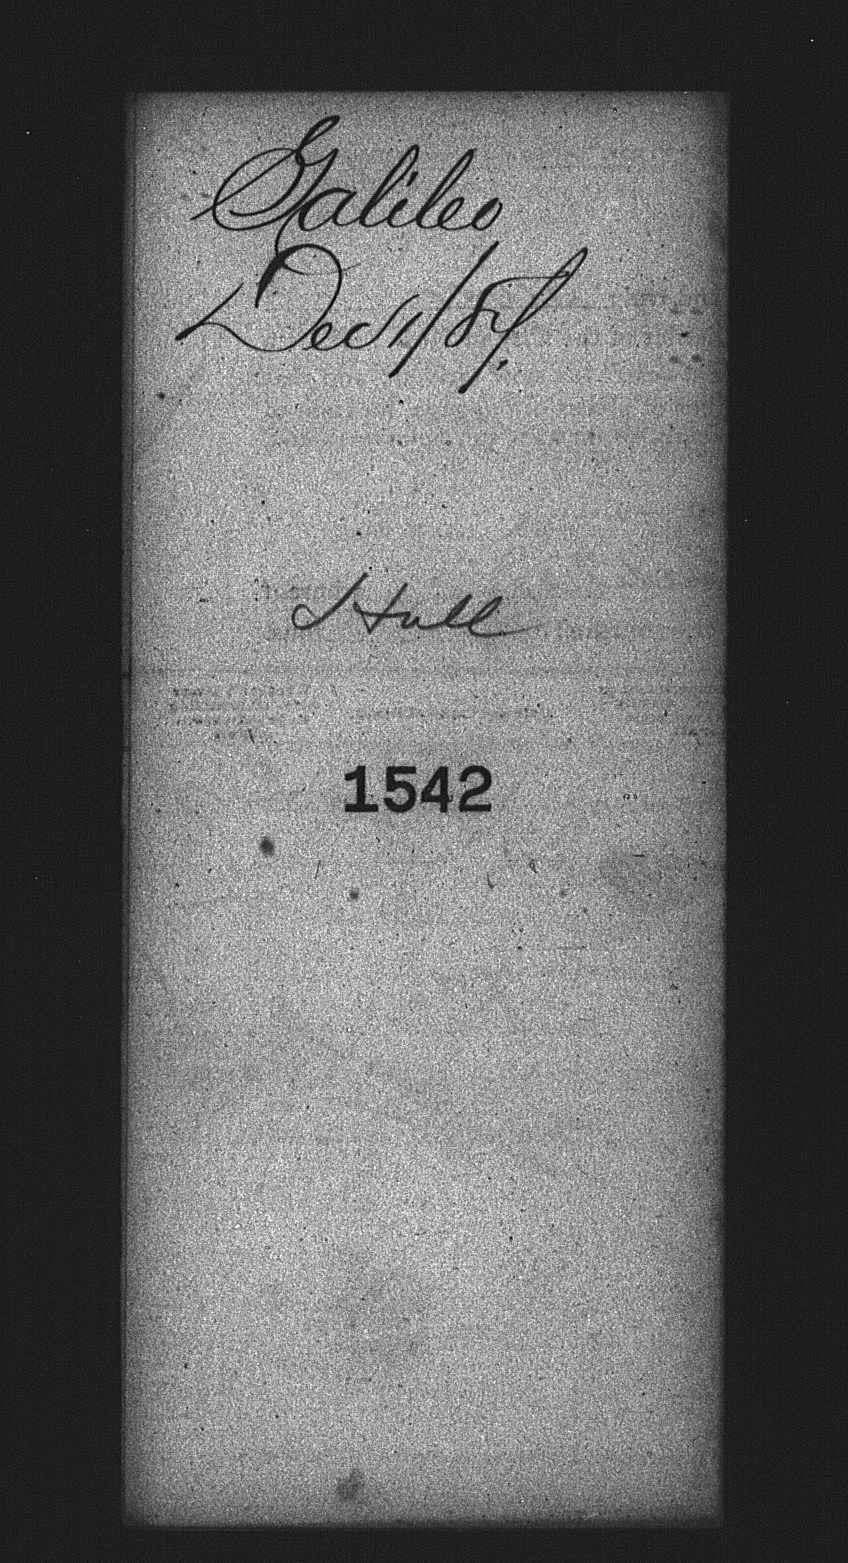 Galileo
Dec 1/87.
Hull
1542